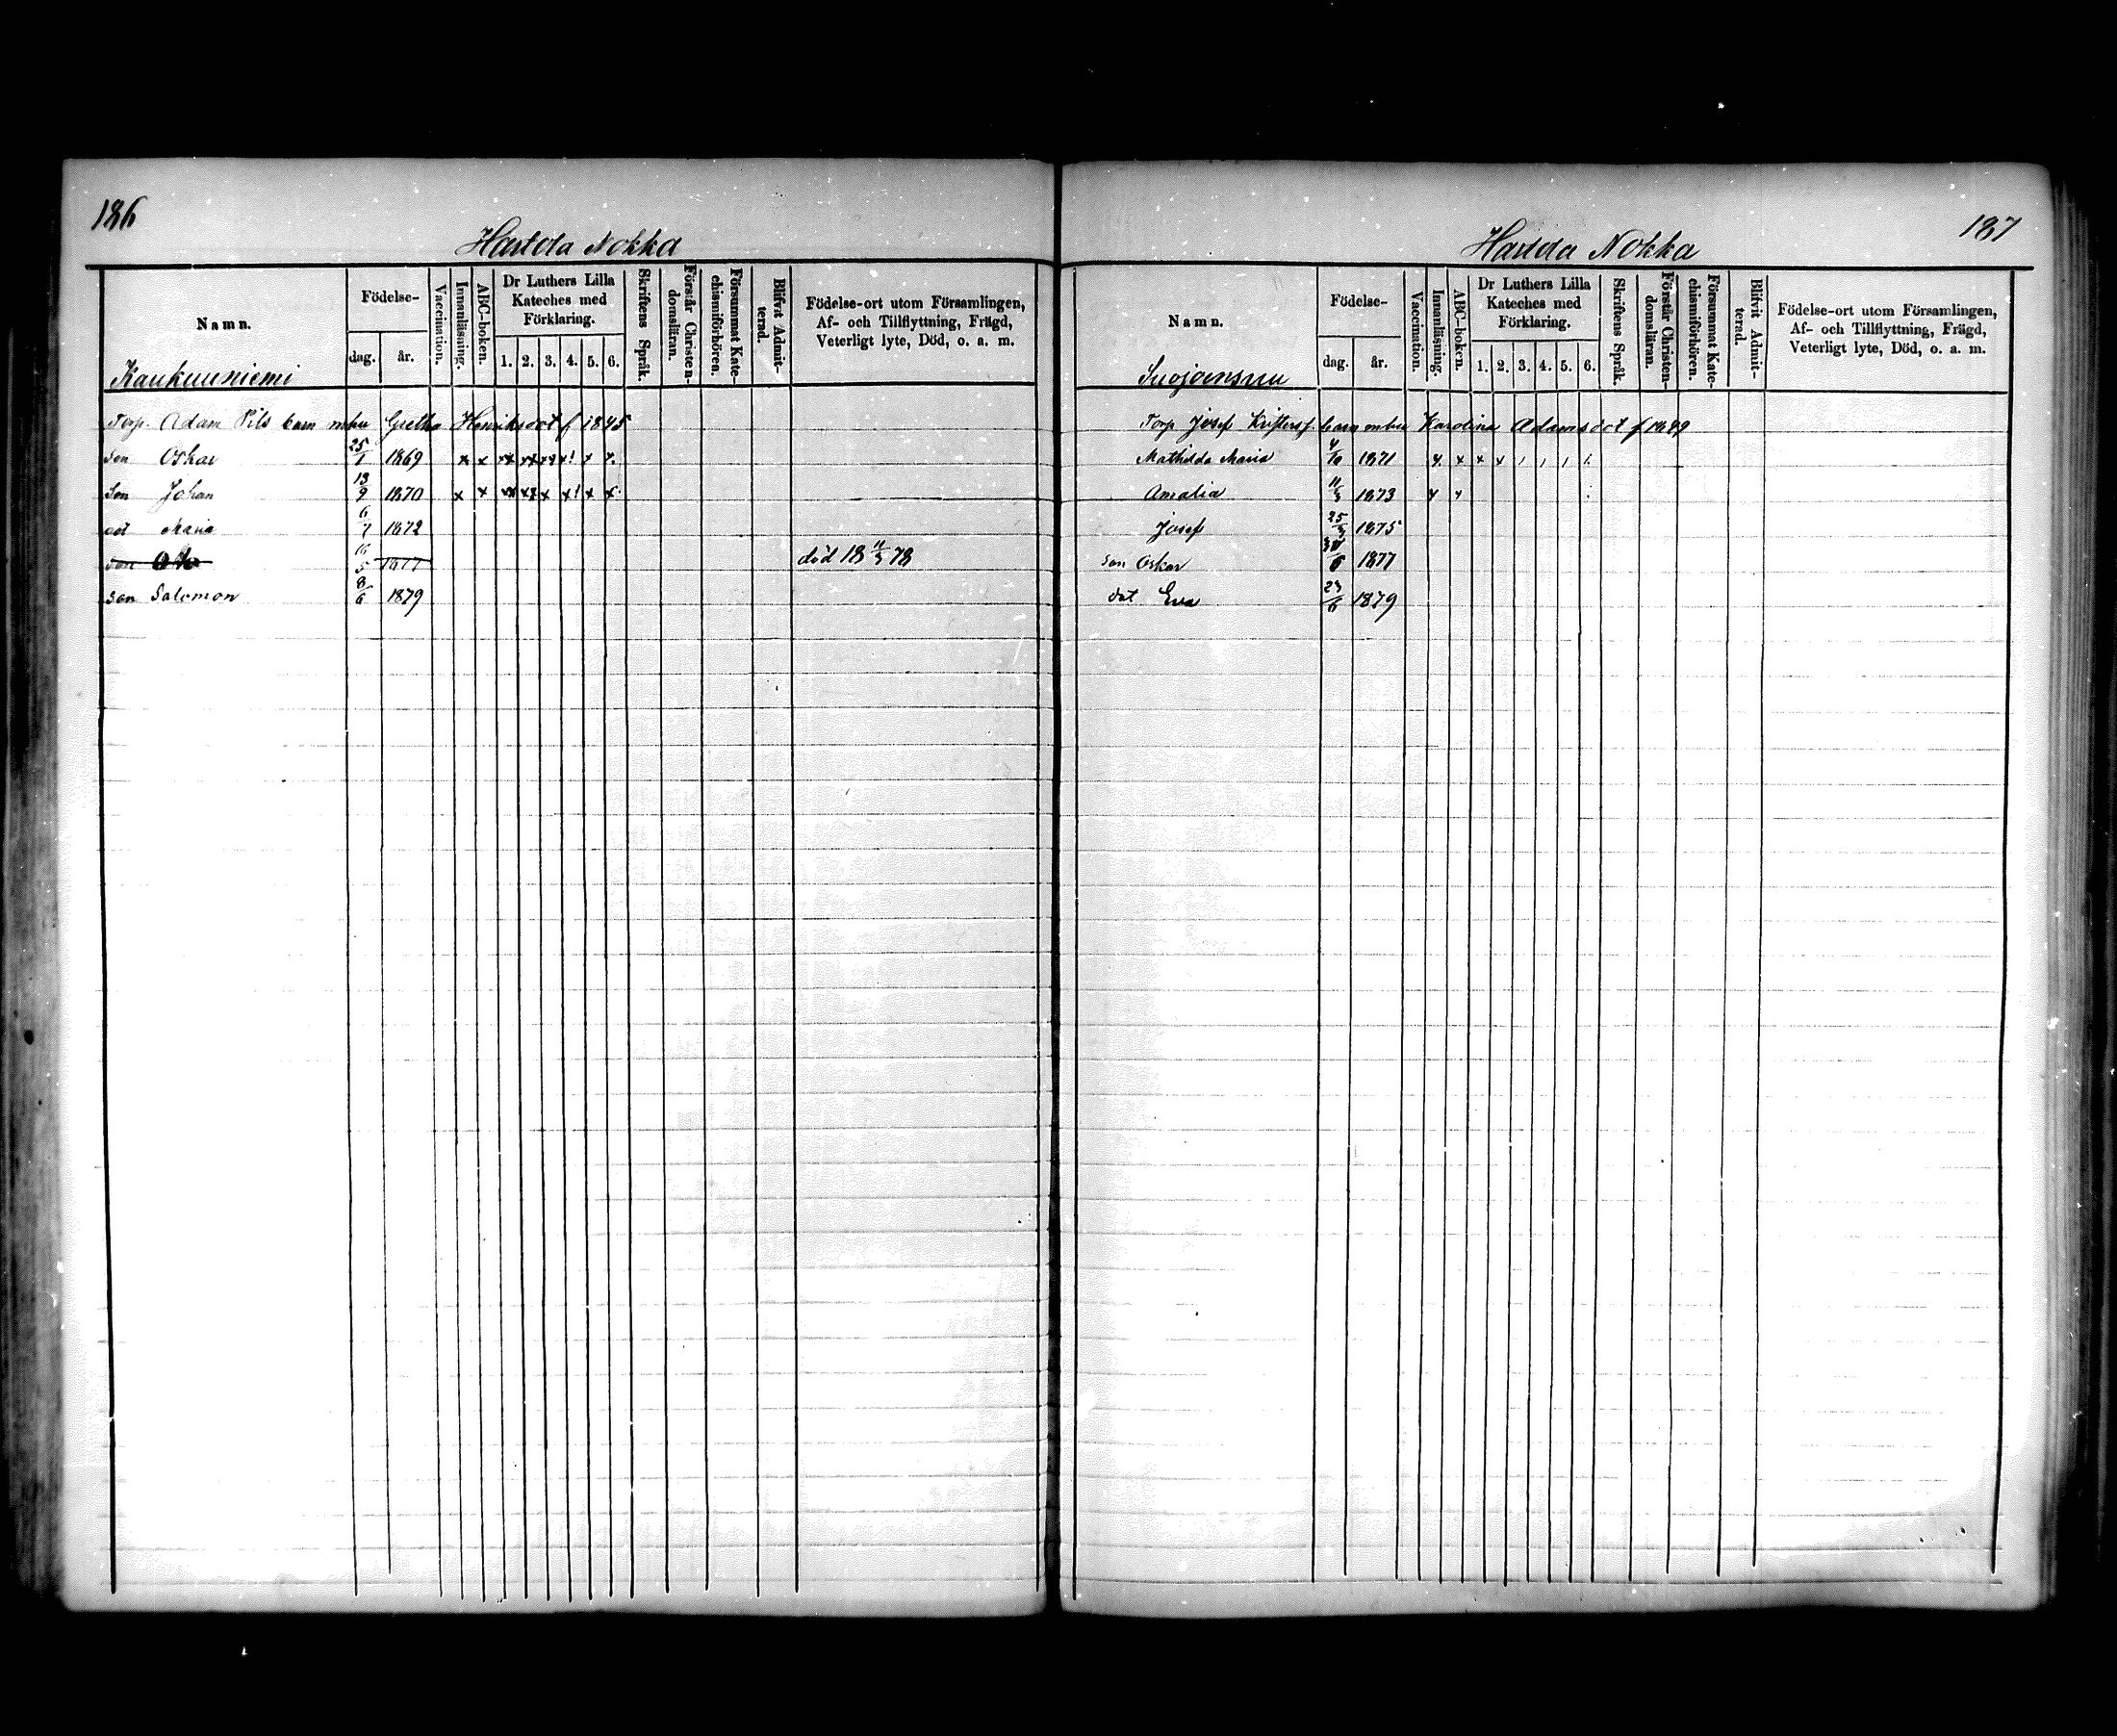 186
Hartola Nokka
Namn.
Födelse-
dag.
år.
Vaccination.
Innanläsning.
ABC-boken.
Dr Luthers Lilla
Kateches med
Förklaring.
1. 2. 3. 4. 5. 6.
Skriftens Språk.
Förstår Christen-
domsläran.
Försummat Kate-
chismiförhören.
Blifvit Admit-
terad.
Födelse-ort utom Församlingen,
Af- och Tillflyttning, Frägd,
Veterligt lyte, Död, o. a. m.
Kaukuuniemi
Torp. Adam Pils barn m hu Gretha Henriksdot f 1845
Son Oskar 25/1 1869 x x xx xx xx x! x x.
Son Johan 13/9 1870 x x xx xx x x! x x.
dot Maria 6/7 1872
son 16/5 1877 död 18 11/3 78
son Salomon 8/6 1879
187
Hartola Nokka
Namn.
Födelse-
dag.
år.
Vaccination.
Innanläsning.
ABC-boken.
Dr Luthers Lilla
Kateches med
Förklaring.
1. 2. 3. 4. 5. 6.
Skriftens Språk.
Förstår Christen-
domsläran.
Försummat Kate-
chismiförhören.
Blifvit Admit-
terad.
Födelse-ort utom Församlingen,
Af- och Tillflyttning, Frägd,
Veterligt lyte, Död, o. a. m.
Suojansuu
Torp Josef Kristerss barn m hu Karolina Adamsdot f 1849
Mathilda Maria 4/10 1871 x x x x / / / /.
Amalia 11/3 1873 x x
Josef 25/3 1875
son Oskar 1877
dot Eva 23/6 1879